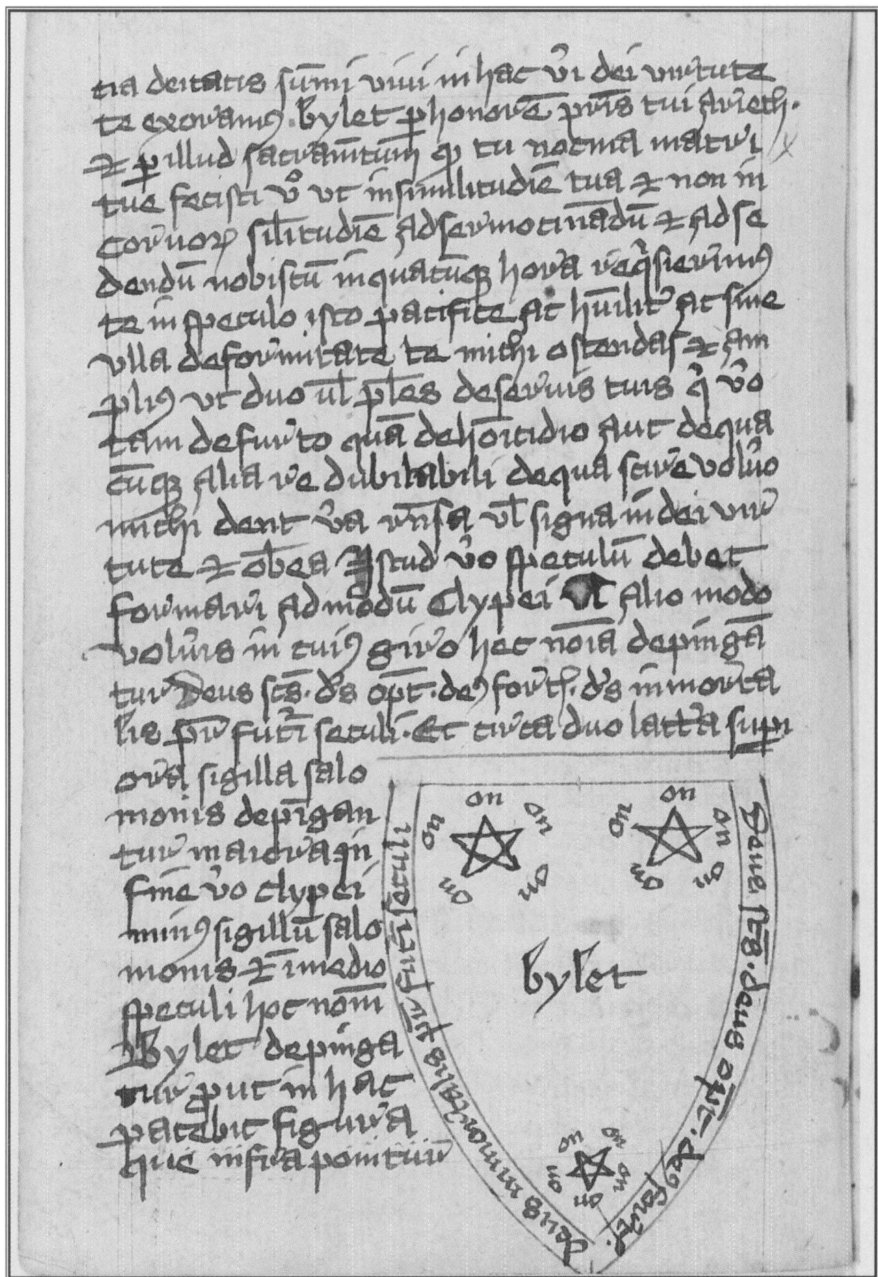 tia deitatis sūmi vivi in hac v̄i dei virtute
te exoramꝰ bylet ꝑ honorē pr̄is tui arieth.
⁊ ꝑ illud sacram̄tum qḋ tu nocma matri
tue fecisti v̊ ut in similitudiē tua ⁊ non in
corvoꝝ sil̄itudiē ad sermocinādū ⁊ ad se
dendū nobiscū in quacūqꝫ hora reqͥsierimꝰ
te in speculo isto pacifice ac hūilit̄ ac sine
ulla deformitate te michi ostendas ⁊ am
plíꝰ ut duo ul̄ pl̄es de servis tuis qͥ v̄o
tam de furto quā de homicidio aut de qua
cūqꝫ alia re dubitabili de qua scire voluo
michi dent v̄a rn̄sa vl̄ signa in dei vir
tute ⁊ ob̄ea Istud v̄o speculū debet
formari ad modū Clypei vl̄ alio modo
volūis in cuiꝰ giro hec noīa depingā
tur Deus sc̄s. ds̄ op̄t. deꝰ forth. ds̄ inmorta
lis pr̄ futī seculi. Et circa duo latt̄a supi
ora sigilla salo
monis depīgan
tur maiora in
fine v̄o clypei
minꝰ sigillū salo
monis ⁊ ī medio
speculi hoc nom̄
Bylet depinga
tur ꝓut in hac
patebit figura
que infra ponitur
on on on on on
on on on on on
bylet
on on on on on
Deus sc̄s. deus op̄t. deꝰ forth.
deus inmortalis pr̄ futuri seculi